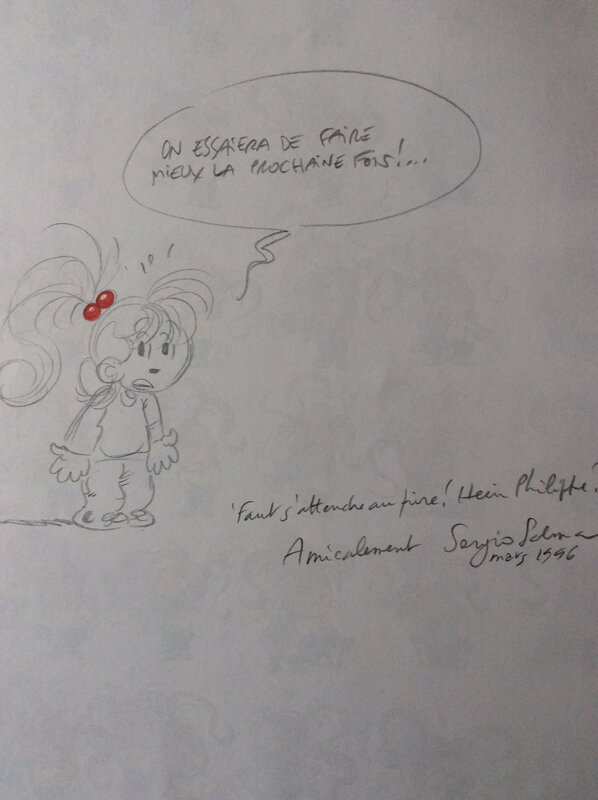 ON ESSAÏERA DE FAIRE
MIEUX LA PROCHAINE FOIS!...
'Faut s'attendre au pire! Hein Philippe!
Amicalement Sergio Salma
mars 1996